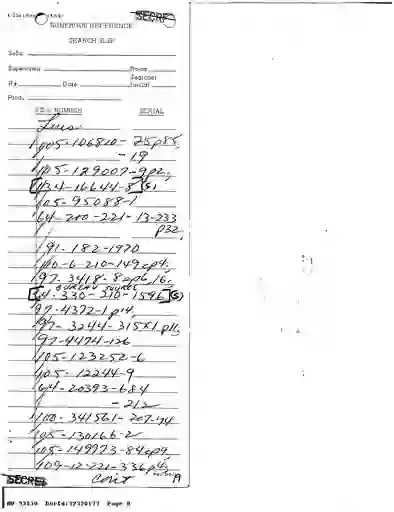 SECRET
NUMEROUS REFERENCE
SEARCH SLIP
Subj:
Supervisor Room
R# Date Searcher Initial
Prod.
FILE NUMBER SERIAL
105-106810- 25p85,
-19
105-129007-9p2,
[134-16644-8](S)
105-95088-1
64-200-221-13-233
p32,
191-182-1970
100-6-210-149cp4,
97-3418-8ep6,16,
BUREAU SOURCE
[64-330-210-1596](S)
97-4372-1p14,
97-3244-315X1p11,
97-4474-126
105-123252-6
105-12244-9
64-20393-684
-212
100-341561-207-74
105-130166-2
105-149973-84cp9,
109-12-221-336p4,
SECRET
Cont